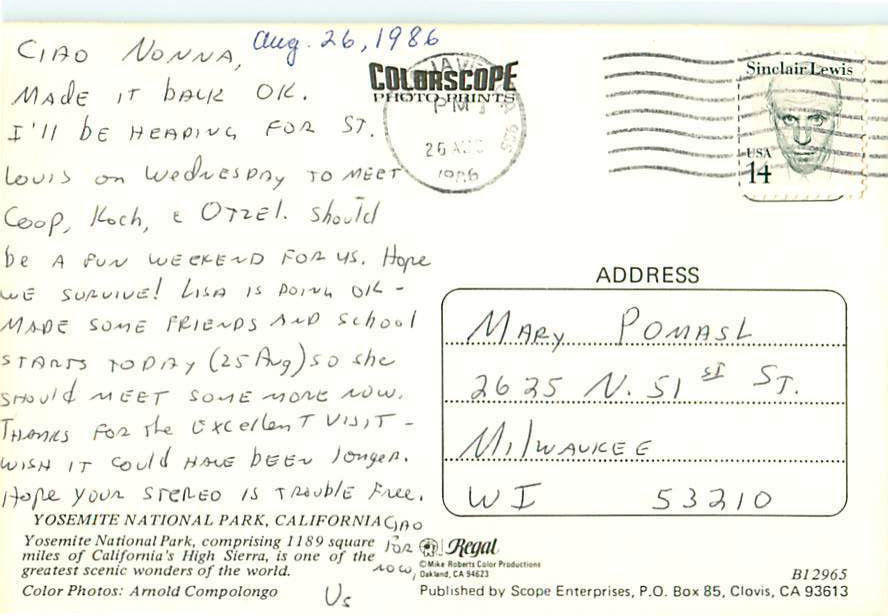 CIAO NONNA,
Aug. 26, 1986
MADE IT BACK OK.
I'll be HEADING FOR ST.
LOUIS on WEDNESDAY TO MEET
Coop, Koch, & OTZEL. Should
be A FUN WEEKEND FOR US. Hope
WE SURVIVE! LISA IS DOING OK -
MADE SOME FRIENDS AND School
STARTS TODAY (25 Aug) so she
Should MEET SOME MORE NOW.
THANKS FOR the EXCELLENT VISIT -
WISH IT COULD HAVE BEEN longer.
Hope your STEREO IS TROUBLE FREE.
CIAO
FOR
NOW,
Us
COLORSCOPE
PHOTO PRINTS
PM
26 AUG
1986
Sinclair Lewis
USA
14
ADDRESS
MARY POMASL
2635 N. 51 ST ST.
MILWAUKEE
WI 53210
YOSEMITE NATIONAL PARK, CALIFORNIA
Yosemite National Park, comprising 1189 square
miles of California's High Sierra, is one of the
greatest scenic wonders of the world.
Color Photos: Arnold Compolongo
Regal
©Mike Roberts Color Productions
Oakland, CA 94623
B12965
Published by Scope Enterprises, P.O. Box 85, Clovis, CA 93613